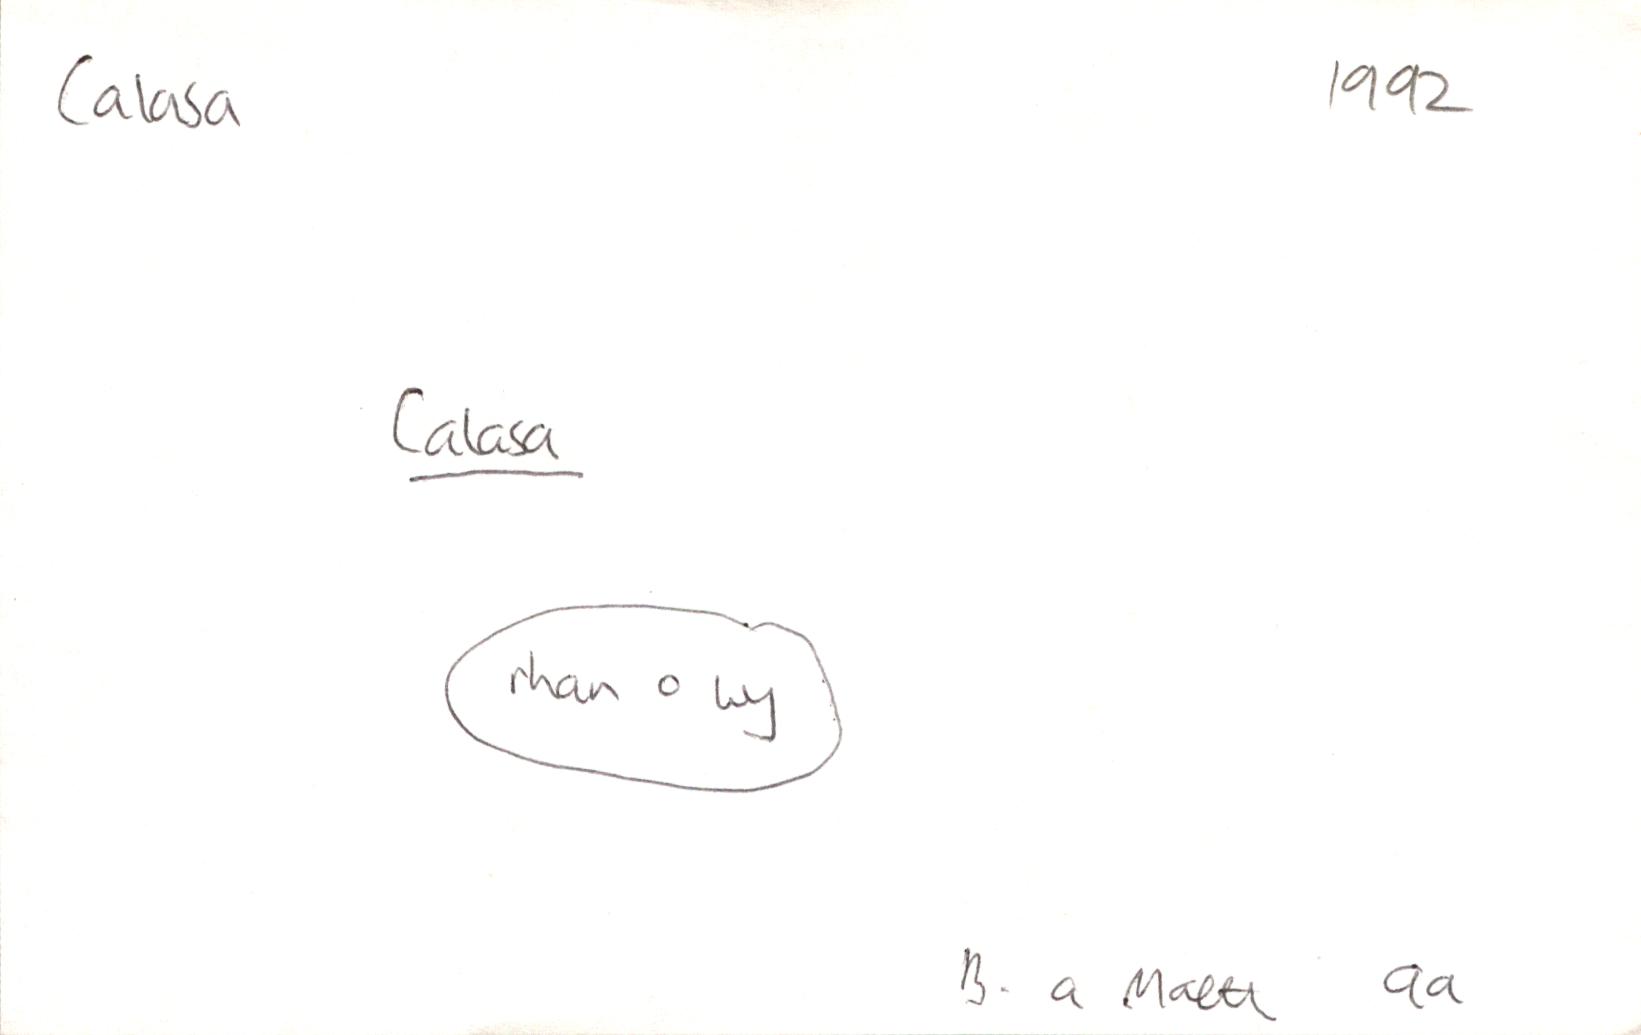 Calasa 1992
Calasa
rhan o wy
B. a Maeth 9a